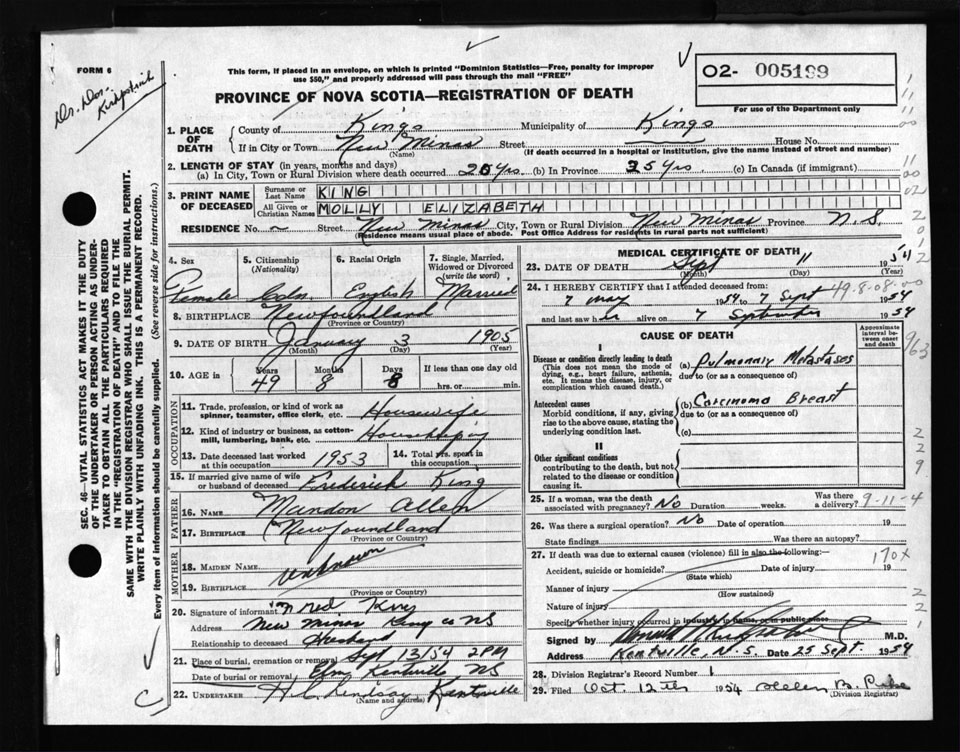 FORM 6
Dr. Don.
Kirkpatrick
This form, if placed in an envelope, on which is printed "Dominion Statistics—Free, penalty for improper
use $50," and properly addressed will pass through the mail "FREE"
PROVINCE OF NOVA SCOTIA—REGISTRATION OF DEATH
O2- 005199
For use of the Department only
SEC. 46—VITAL STATISTICS ACT MAKES IT THE DUTY
OF THE UNDERTAKER OR PERSON ACTING AS UNDER-
TAKER TO OBTAIN ALL THE PARTICULARS REQUIRED
IN THE "REGISTRATION OF DEATH" AND TO FILE THE
SAME WITH THE DIVISION REGISTRAR WHO SHALL ISSUE THE BURIAL PERMIT.
WRITE PLAINLY WITH UNFADING INK. THIS IS A PERMANENT RECORD.
Every item of information should be carefully supplied. (See reverse side for instructions.)
1. PLACE OF DEATH County of Kings Municipality of Kings
If in City or Town New Minas Street House No.
(Name) (If death occurred in a hospital or institution, give the name instead of street and number)
2. LENGTH OF STAY (in years, months and days)
(a) In City, Town or Rural Division where death occurred 20 Yrs. (b) In Province 35 Yrs (c) In Canada (if immigrant)
3. PRINT NAME OF DECEASED Surname or Last Name KING
All Given or Christian Names MOLLY ELIZABETH
RESIDENCE No. Street New Minas City, Town or Rural Division New Minas Province N.S.
(Residence means usual place of abode. Post Office Address for residents in rural parts not sufficient)
4. Sex 5. Citizenship (Nationality) 6. Racial Origin 7. Single, Married, Widowed or Divorced (write the word)
Female Cdn. English Married
8. BIRTHPLACE Newfoundland
(Province or Country)
9. DATE OF BIRTH January 3 1905
(Month) (Day) (Year)
10. AGE in Years Months Days If less than one day old
49 8 8 hrs. or min.
OCCUPATION
11. Trade, profession, or kind of work as spinner, teamster, office clerk, etc. Housewife
12. Kind of industry or business, as cotton-mill, lumbering, bank, etc.
13. Date deceased last worked at this occupation 1953 14. Total yrs. spent in this occupation
15. If married give name of wife or husband of deceased Frederick King
FATHER
16. NAME Allen
17. BIRTHPLACE Newfoundland
(Province or Country)
MOTHER
18. MAIDEN NAME unknown
19. BIRTHPLACE
(Province or Country)
20. Signature of informant Fred. King
Address New Minas Kings co NS
Relationship to deceased Husband
21. Place of burial, cremation or removal Sept 13/54 2PM
Date of burial or removal, Elm Kentville NS
22. UNDERTAKER H.C. Lindsay Kentville
(Name and address)
MEDICAL CERTIFICATE OF DEATH
23. DATE OF DEATH Sept 11 1954
(Month) (Day) (Year)
24. I HEREBY CERTIFY that I attended deceased from:
7 May 1954 to 7 Sept 1954
49.8.08.00
and last saw her alive on 7 September 1954
CAUSE OF DEATH
Approximate interval between onset and death
I
Disease or condition directly leading to death
(This does not mean the mode of dying, e.g., heart failure, asthenia, etc. It means the disease, injury, or complication which caused death.)
(a) Pulmonary Metastases
due to (or as a consequence of)
Antecedent causes
Morbid conditions, if any, giving rise to the above cause, stating the underlying condition last.
(b) Carcinoma Breast
due to (or as a consequence of)
(c)
II
Other significant conditions
contributing to the death, but not related to the disease or condition causing it.
25. If a woman, was the death associated with pregnancy? No Duration weeks. Was there a delivery? 9-11-4
26. Was there a surgical operation? No Date of operation 19
State findings Was there an autopsy?
27. If death was due to external causes (violence) fill in also the following:
170x
Accident, suicide or homicide? Date of injury 19
(State which)
Manner of injury
(How sustained)
Nature of injury
Specify whether injury occurred in industry, in home, or in public place
Signed by M.D.
Address Kentville, N.S. Date 25 Sept. 1954
28. Division Registrar's Record Number 1
29. Filed Oct. 12th 1954 Helen B.
(Division Registrar)